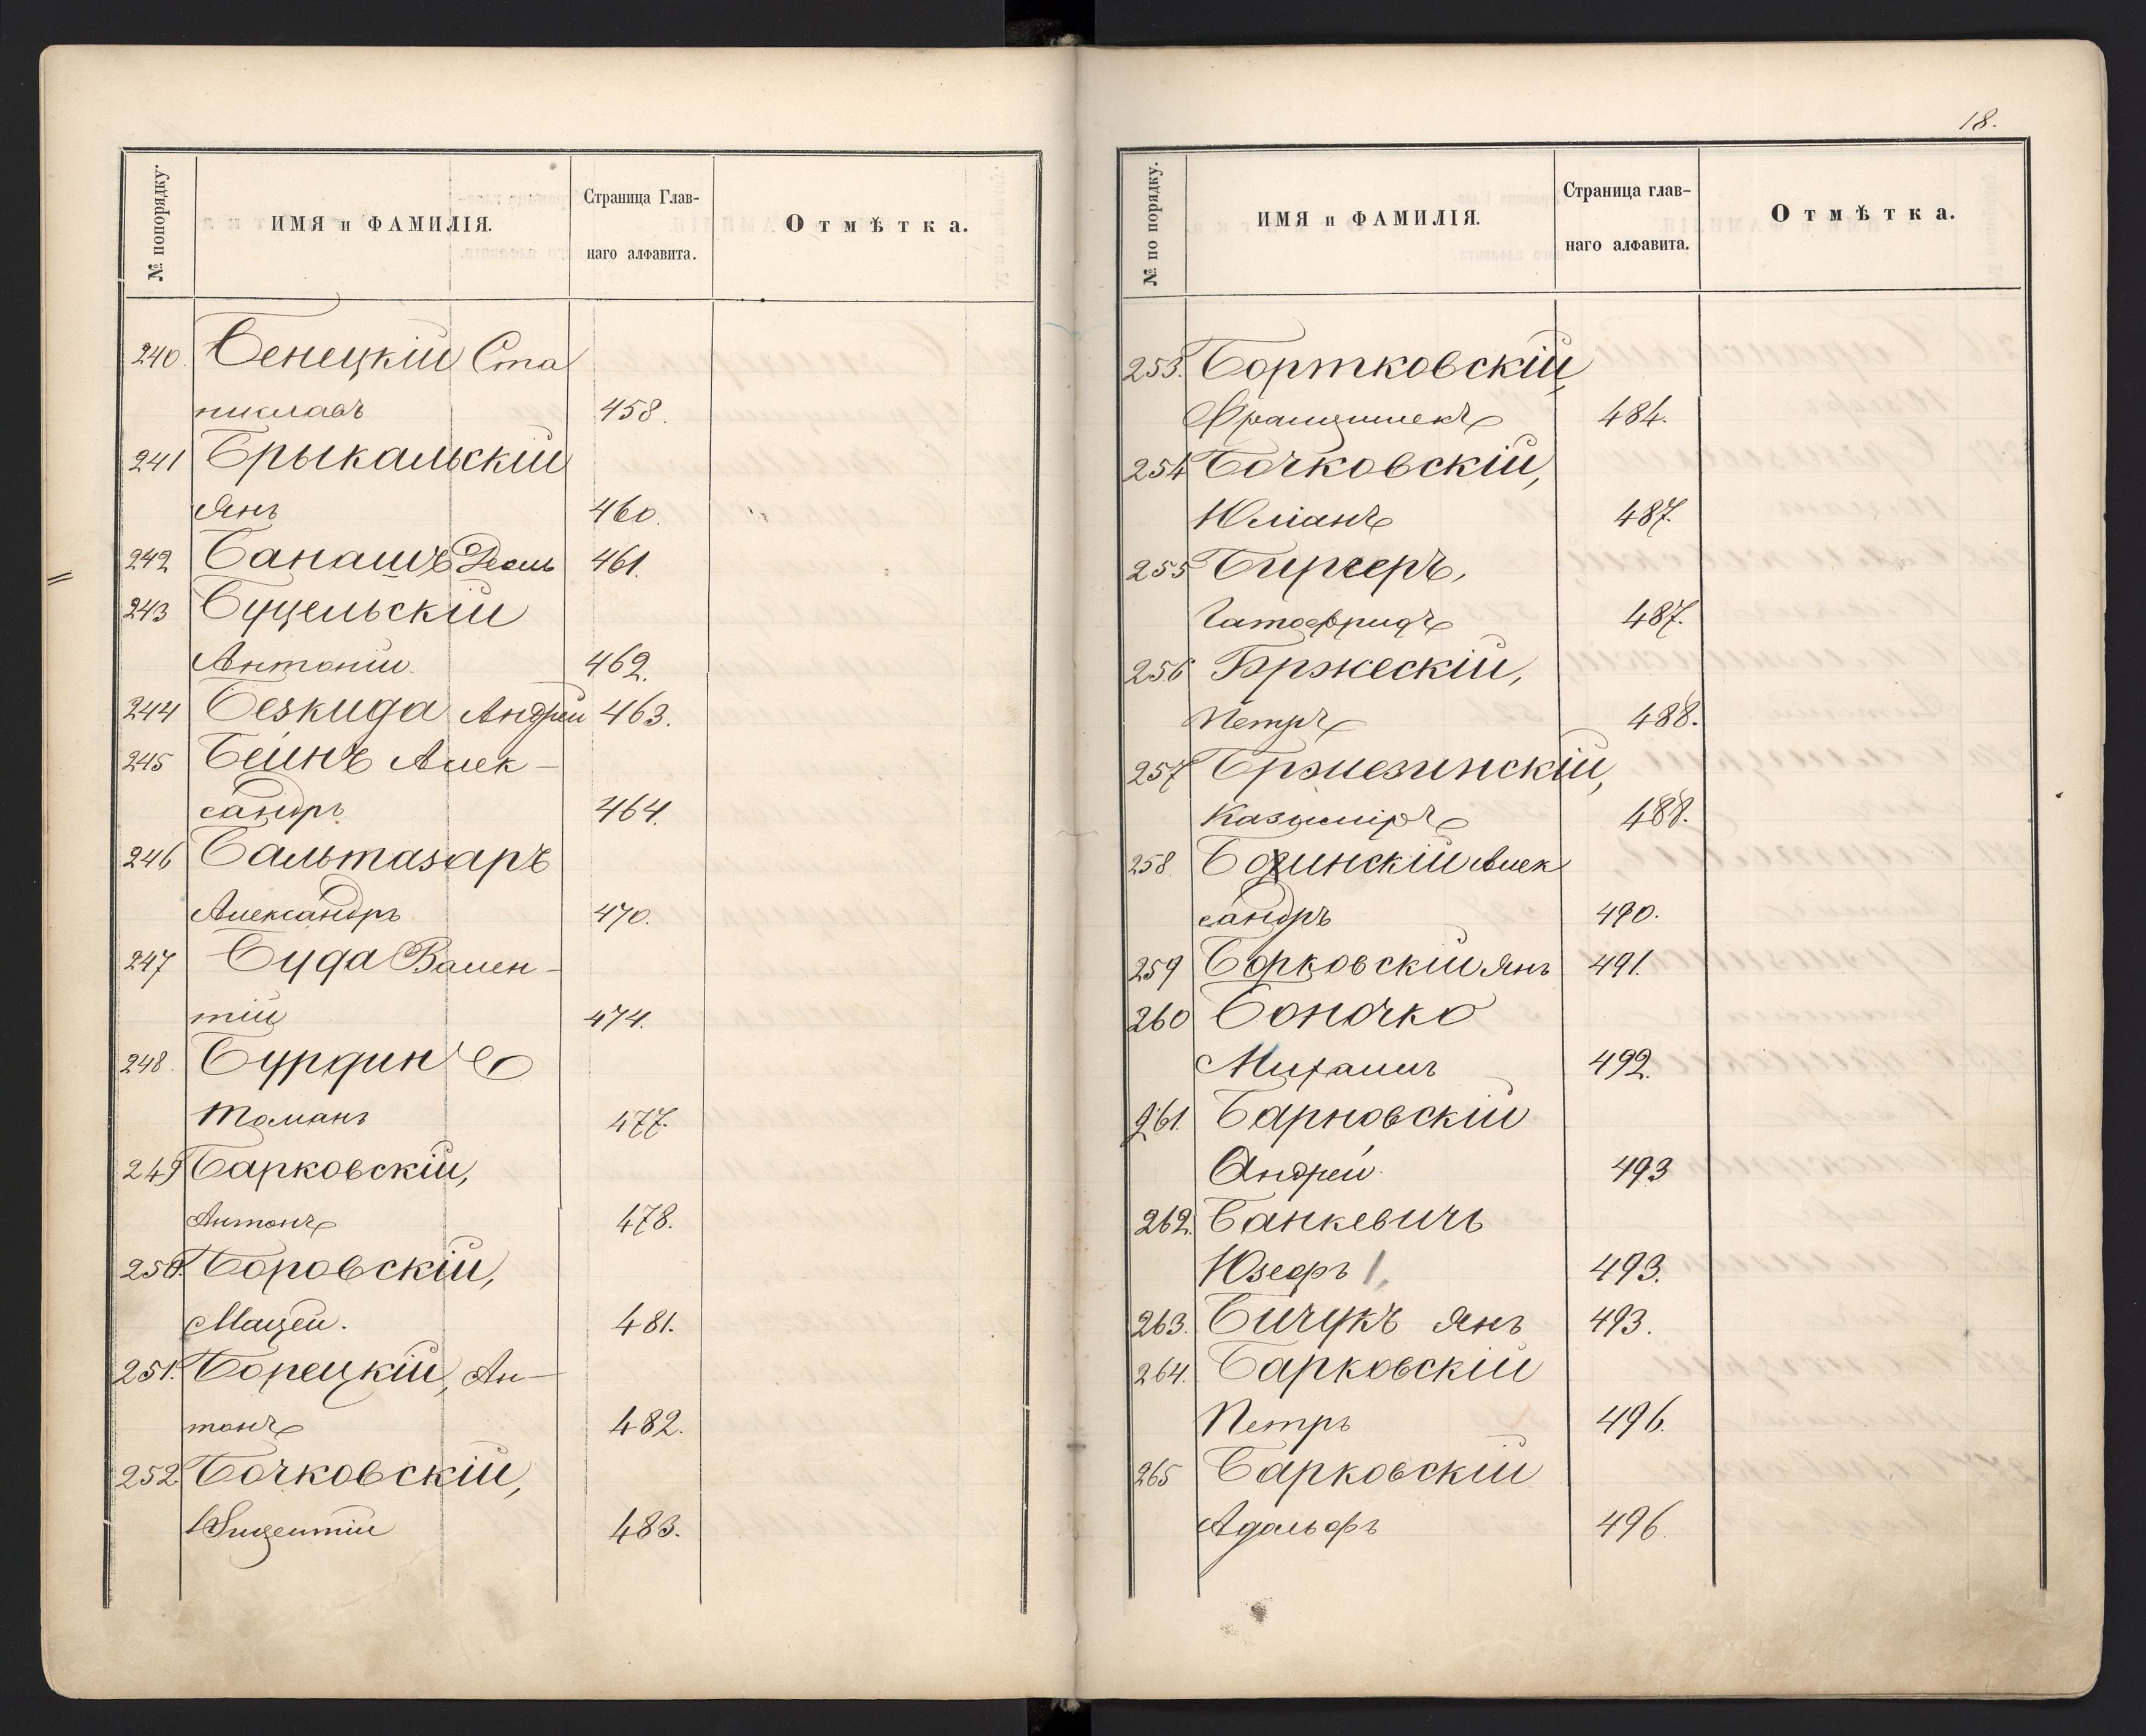 № попорядку.
ИМЯ и ФАМИЛІЯ.
Страница Глав-
наго алфавита.
Отмѣтка.
240. Бенецкій Ста
ниславъ 458.
241 Брыкальскій
Янъ 460.
242 Банашъ 461.
243 Буцельскій
Антоній. 462.
244 Безкида Андрей 463.
245 Бейнъ Алек-
сандръ 464.
246 Бальтазаръ
Александръ 470.
247 Буда Вален-
тій 474.
248. Бурдинъ
Томанъ 477.
249 Барковскій,
Антонъ 478.
250. Боровскій,
Мацей. 481.
251. Борецкій, Ан-
тонъ 482.
252. Бочковскій,
Вицентій 483.
18.
№ по порядку.
ИМЯ и ФАМИЛІЯ.
Страница глав-
наго алфавита.
Отмѣтка.
253. Бортковскій,
Францишекъ 484.
254 Бочковскій,
Юліанъ 487.
255 Биргеръ,
Готофридъ 487.
256 Бржескій,
Петръ 488.
257 Брзезинскій,
Казимиръ 488.
258. Алек
сандръ 490.
259 Борковскій Янъ 491.
260 Боночко
Михаилъ 492.
261. Барновскій
Андрей. 493
262. Банкевичъ
Юзефъ 493.
263. Бичукъ Янъ 493.
264. Барковскій
Петръ 496.
265 Барковскій
Адольфъ 496.